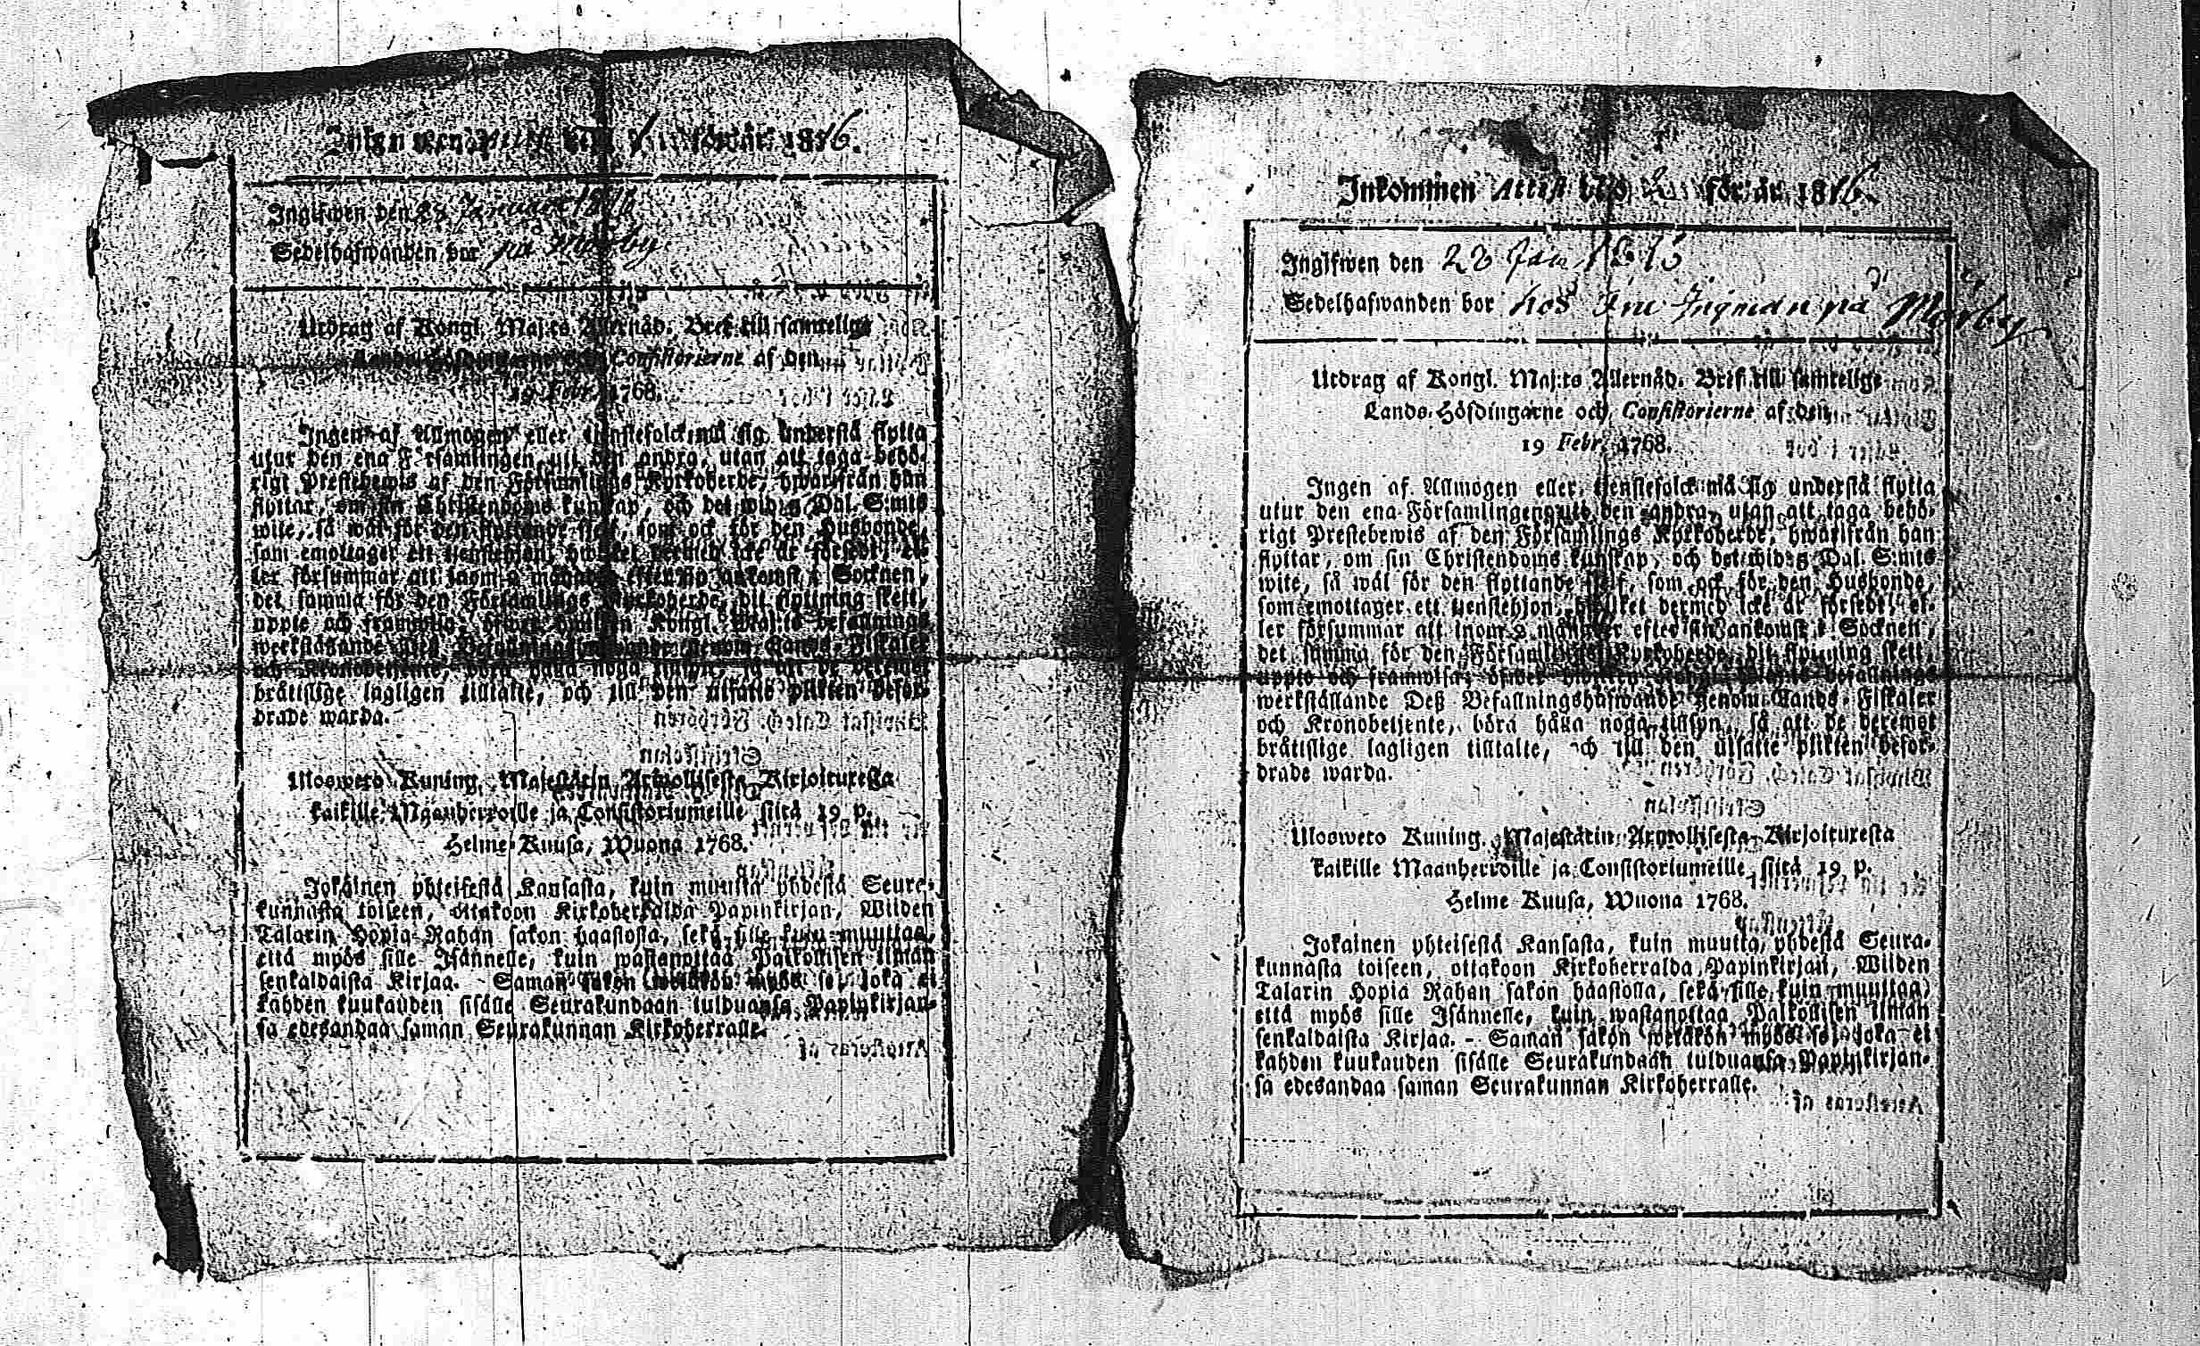 för år 1816.
Ingifwen den 28 Januari 1816
Sedelhafwanden bor på Mörby
Utdrag af Kongl. Maj:ts Allernåd. Bref till samtelige
Lands-Höfdingarne och Consistorierne af den
19 Febr. 1768.
Ingen af Allmogen eller tjenstefolck må sig understå flytta
utur den ena Församlingen uti den andra, utan att taga behö-
rigt Prestebewis af den Församlings Kyrkoherde, hwarifrån han
flyttar, om sin Christendoms kunskap, och det wid 19 Dal. S:mts
wite, så wäl för den flyttande sjelf, som ock för den Husbonde,
som emottager ett tjenstehjon, hwilket dermed icke är försedt, el-
ler försummar att inom 2 månader efter sin ankomst i Socknen,
det samma för den Församlings Kyrkoherde, dit flyttning skett,
uppte och framwisa; öfwer hwilken Kongl. Maj:ts befallnings
werkställande Deß Befallningshafwande genom Lands-Fiskaler
och Kronobetjente, böra hålla noga tillsyn, så att de deremot
bråttslige lagligen tilltalte, och till den utsatte plikten befor-
drade warda.
Ulosweto Kuning. Majestätin Armollisesta Kirjoituresta
kaikille Maanherroille ja Consistoriumeille siitä 19 p.
Helme-Kuusa, Wuona 1768.
Jokainen yhteisestä Kansasta, kuin muutta yhdestä Seura-
kunnasta toiseen, ottakoon Kirkoherralda Papinkirjan, Wiiden
Talarin Hopia Rahan sakon haastolla, sekä sille kuin muuttaa,
että myös sille Isännelle, kuin wastanottaa Palkollisen ilman
senkaldaista Kirjaa. Saman sakon wetäkön myös se, joka ei
kahden kuukauden sisälle Seurakundaan tulduansa Papinkirjan-
sa edesandaa saman Seurakunnan Kirkoherralle.
Inkommen Attest N:o 2 för år 1816.
Ingifwen den 28 Jan 1816
Sedelhafwanden bor hos Ingman på Mörby
Utdrag af Kongl. Maj:ts Allernåd. Bref till samtelige
Lands-Höfdingarne och Consistorierne af den
19 Febr. 1768.
Ingen af Allmogen eller tjenstefolck må sig understå flytta
utur den ena Församlingen uti den andra, utan att taga behö-
rigt Prestebewis af den Församlings Kyrkoherde, hwarifrån han
flyttar, om sin Christendoms kunskap, och det wid 19 Dal. S:mts
wite, så wäl för den flyttande sjelf, som ock för den Husbonde,
som emottager ett tjenstehjon, hwilket dermed icke är försedt, el-
ler försummar att inom 2 månader efter sin ankomst i Socknen,
det samma för den Församlings Kyrkoherde, dit flyttning skett,
uppte och framwisa; öfwer hwilken Kongl. Maj:ts befallnings
werkställande Deß Befallningshafwande genom Lands-Fiskaler
och Kronobetjente, böra hålla noga tillsyn, så att de deremot
bråttslige lagligen tilltalte, och till den utsatte plikten befor-
drade warda.
Ulosweto Kuning. Majestätin Armollisesta Kirjoituresta
kaikille Maanherroille ja Consistoriumeille siitä 19 p.
Helme Kuusa, Wuona 1768.
Jokainen yhteisestä Kansasta, kuin muutta yhdestä Seura-
kunnasta toiseen, ottakoon Kirkoherralda Papinkirjan, Wiiden
Talarin Hopia Rahan sakon haastolla, sekä sille kuin muuttaa,
että myös sille Isännelle, kuin wastanottaa Palkollisen ilman
senkaldaista Kirjaa. - Saman sakon wetäkön myös se, joka ei
kahden kuukauden sisälle Seurakundaan tulduansa Papinkirjan-
sa edesandaa saman Seurakunnan Kirkoherralle.